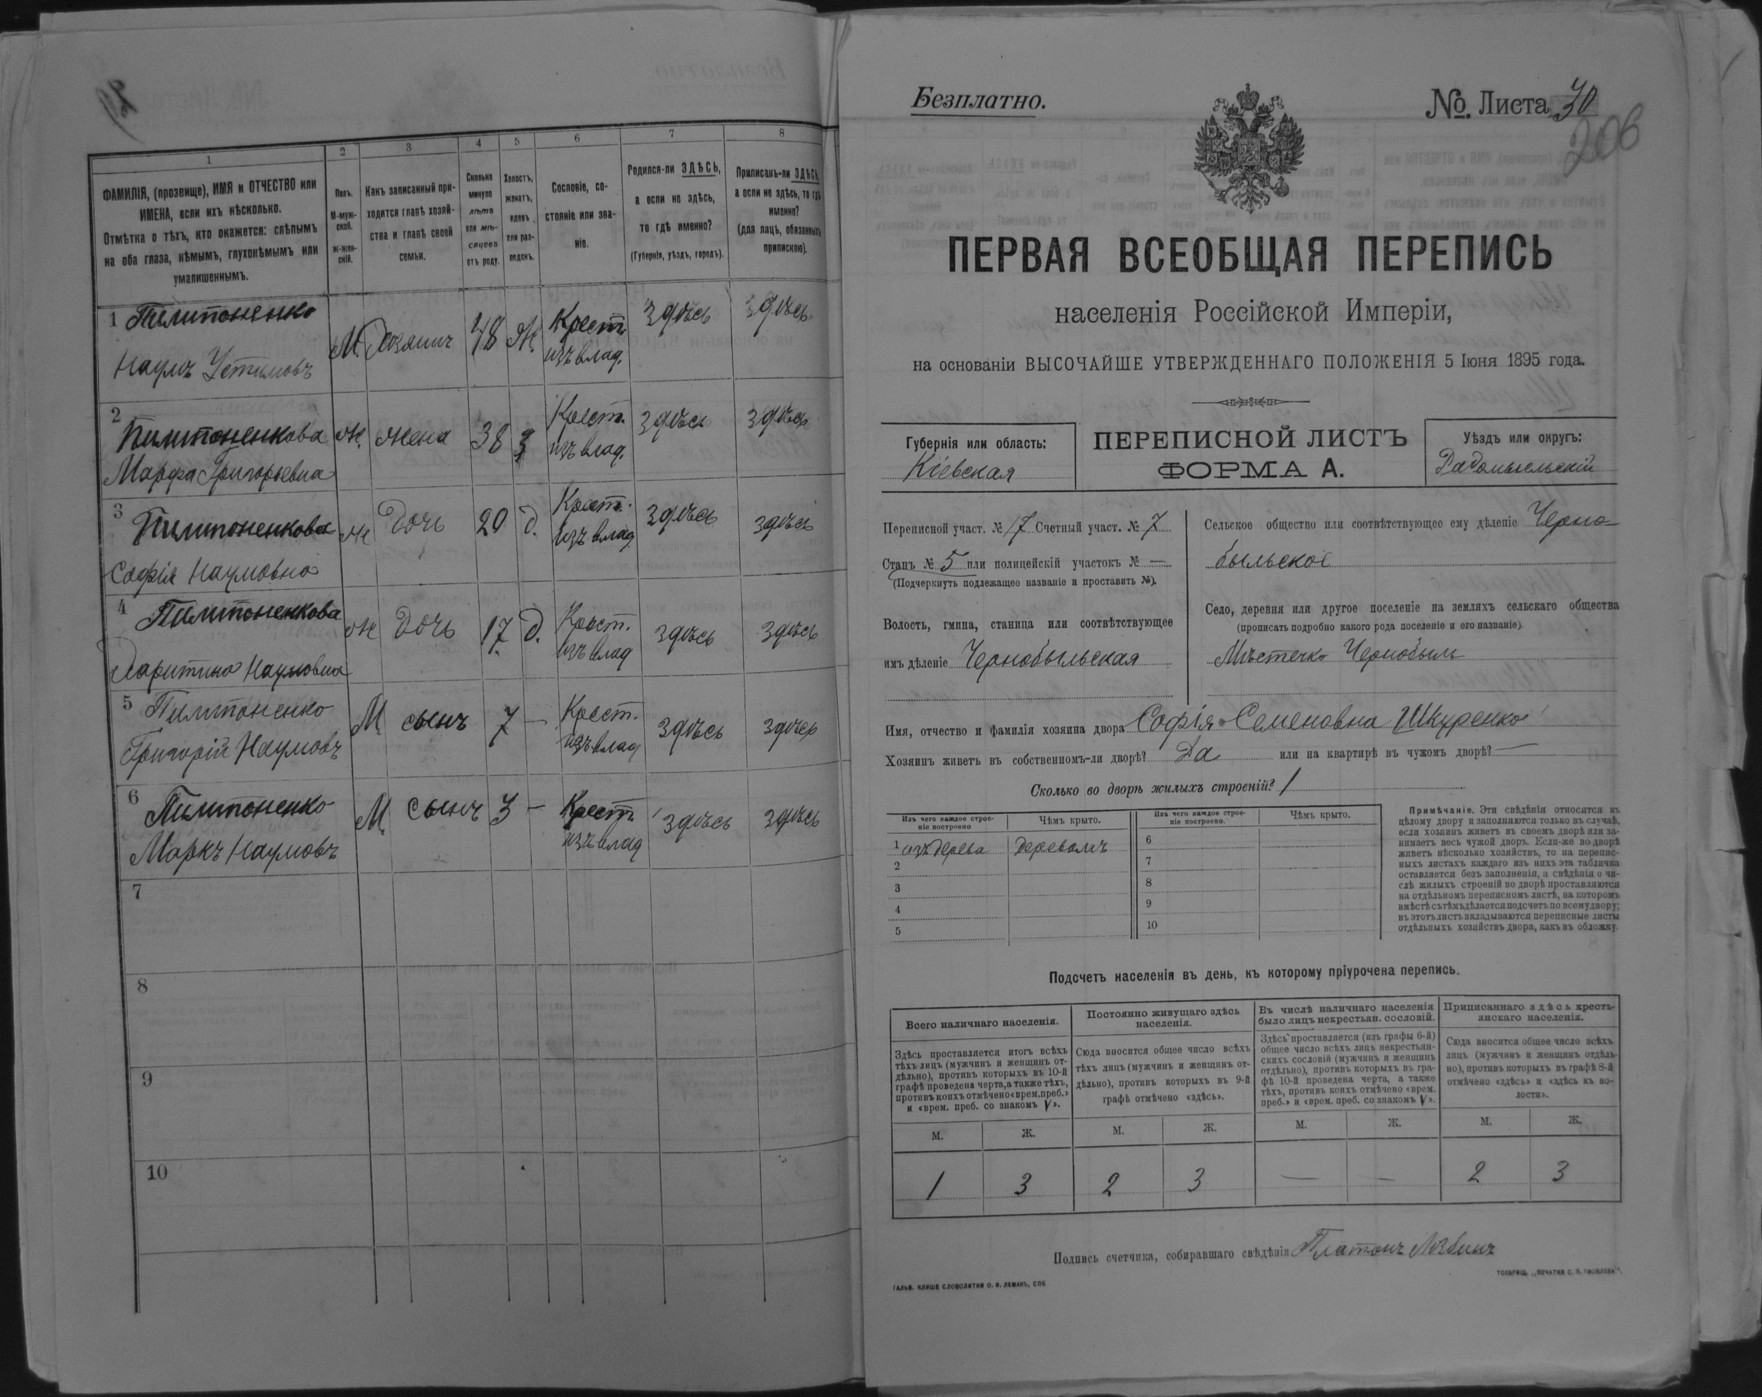 1
2
3
4
5
6
7
8
ФАМИЛІЯ, (прозвище), ИМЯ и ОТЧЕСТВО или
ИМЕНА, если ихъ нѣсколько.
Отмѣтка о тѣхъ, кто окажется: слѣпымъ
на оба глаза, нѣмымъ, глухонѣмымъ или
умалишеннымъ.
Полъ.
М-муж-
ской.
Ж-жен-
скій.
Какъ записанный при-
ходится главѣ хозяй-
ства и главѣ своей
семьи.
Сколько
минуло
лѣтъ
или мѣ-
сяцевъ
отъ роду.
Холостъ,
женатъ,
вдовъ
или раз-
веденъ.
Сословіе, со-
стояніе или зва-
ніе.
Родился-ли ЗДѢСЬ,
а если не здѣсь,
то гдѣ именно?
(Губернія, уѣздъ, городъ).
Приписанъ-ли ЗДѢСЬ,
а если не здѣсь, то гдѣ
именно?
(для лицъ, обязанныхъ
припискою).
1 Пилипоненко
Наумъ Устимовъ
М. Хозяинъ 48 Ж. Крест.
изъ влад. здѣсь здѣсь
2
Пилипоненкова
Марфа Григорьевна
Ж. жена 38 З Крест.
изъ влад. здѣсь здѣсь
3
Пилипоненкова
Софія Наумовна
Ж Дочь 20 Д. Крест.
изъ влад здѣсь здѣсь
4 Пилипоненкова
Харитина Наумовна
Ж Дочь 17 Д. Крест.
изъ влад здѣсь здѣсь
5 Пилипоненко
Григорій Наумовъ
М сынъ 7 — Крест.
изъ влад здѣсь здѣсь
6
Пилипоненко
Маркъ Наумовъ
М сынъ 3 — Крест
изъ влад здѣсь здѣсь
7
8
9
10
Безплатно.
№. Листа 30
206
ПЕРВАЯ ВСЕОБЩАЯ ПЕРЕПИСЬ
населенія Россійской Имперіи,
на основаніи ВЫСОЧАЙШЕ УТВЕРЖДЕННАГО ПОЛОЖЕНІЯ 5 Іюня 1895 года.
Губернія или область:
Кіевская
ПЕРЕПИСНОЙ ЛИСТЪ
ФОРМА А.
Уѣздъ или округъ:
Радомысльскій
Переписной участ. № 17 Счетный участ. № 7
Станъ № 5 или полицейскій участокъ № —
(Подчеркнуть подлежащее названіе и проставить №).
Волость, гмина, станица или соотвѣтствующее
имъ дѣленіе Чернобыльская
Сельское общество или соотвѣтствующее ему дѣленіе Черно
быльское
Село, деревня или другое поселеніе на земляхъ сельскаго общества
(прописать подробно какого рода поселеніе и его названіе)
Мѣстечко Чернобыль
Имя, отчество и фамилія хозяина двора Софія Семеновна Шкуренко
Хозяинъ живетъ въ собственномъ-ли дворѣ? Да или на квартирѣ въ чужомъ дворѣ? —
Сколько во дворѣ жилыхъ строеній? 1
Изъ чего каждое строе-
ніе построено
Чѣмъ крыто.
Изъ чего каждое строе-
ніе построено.
Чѣмъ крыто.
1 изъ дерева Деревомъ
2
3
4
5
6
7
8
9
10
Примѣчаніе. Эти свѣдѣнія относятся къ
цѣлому двору и заполняются только въ случаѣ,
если хозяинъ живетъ въ своемъ дворѣ или за-
нимаетъ весь чужой дворъ. Если-же во дворѣ
живетъ нѣсколько хозяйствъ, то на перепис-
ныхъ листахъ каждаго изъ нихъ эта табличка
оставляется безъ заполненія, а свѣдѣнія о чи-
слѣ жилыхъ строеній во дворѣ проставляются
на отдѣльномъ переписномъ листѣ, на которомъ
вмѣстѣ съ тѣмъ дѣлается подсчетъ по всему двору;
въ этотъ листъ вкладываются переписные листы
отдѣльныхъ хозяйствъ двора, какъ въ обложку.
Подсчетъ населенія въ день, къ которому пріурочена перепись.
Всего наличнаго населенія.
Постоянно живущаго здѣсь
населенія.
Въ числѣ наличнаго населенія
было лицъ некрестьян. сословій.
Приписаннаго здѣсь кресть-
янскаго населенія.
Здѣсь проставляется итогъ всѣхъ
тѣхъ лицъ (мужчинъ и женщинъ от-
дѣльно), противъ которыхъ въ 10-й
графѣ проведена черта, а также тѣхъ,
противъ коихъ отмѣчено «врем. преб.»
и «врем. преб. со знакомъ V».
Сюда вносится общее число всѣхъ
тѣхъ лицъ (мужчинъ и женщинъ от-
дѣльно), противъ которыхъ въ 9-й
графѣ отмѣчено «здѣсь».
Здѣсь проставляется (изъ графы 6-й)
общее число всѣхъ лицъ некрестьян-
скихъ сословій (мужчинъ и женщинъ
отдѣльно), противъ которыхъ въ гра-
фѣ 10-й проведена черта, а также
тѣхъ, противъ коихъ отмѣчено «врем.
преб.» и «врем. преб. со знакомъ V».
Сюда вносится общее число всѣхъ
лицъ (мужчинъ и женщинъ отдѣль-
но), противъ которыхъ въ графѣ 8-й
отмѣчено «здѣсь» и «здѣсь къ во-
лости».
М. Ж. М. Ж. М. Ж. М. Ж.
1 3 2 3 — — 2 3
Подпись счетчика, собиравшаго свѣдѣнія Платонъ
ГАЛЬВ. КЛИШЕ СЛОВОЛИТНИ О. И. ЛЕМАНЪ, СПБ
ТОВАРИЩ. „ПЕЧАТНЯ С. П. ЯКОВЛЕВА“.